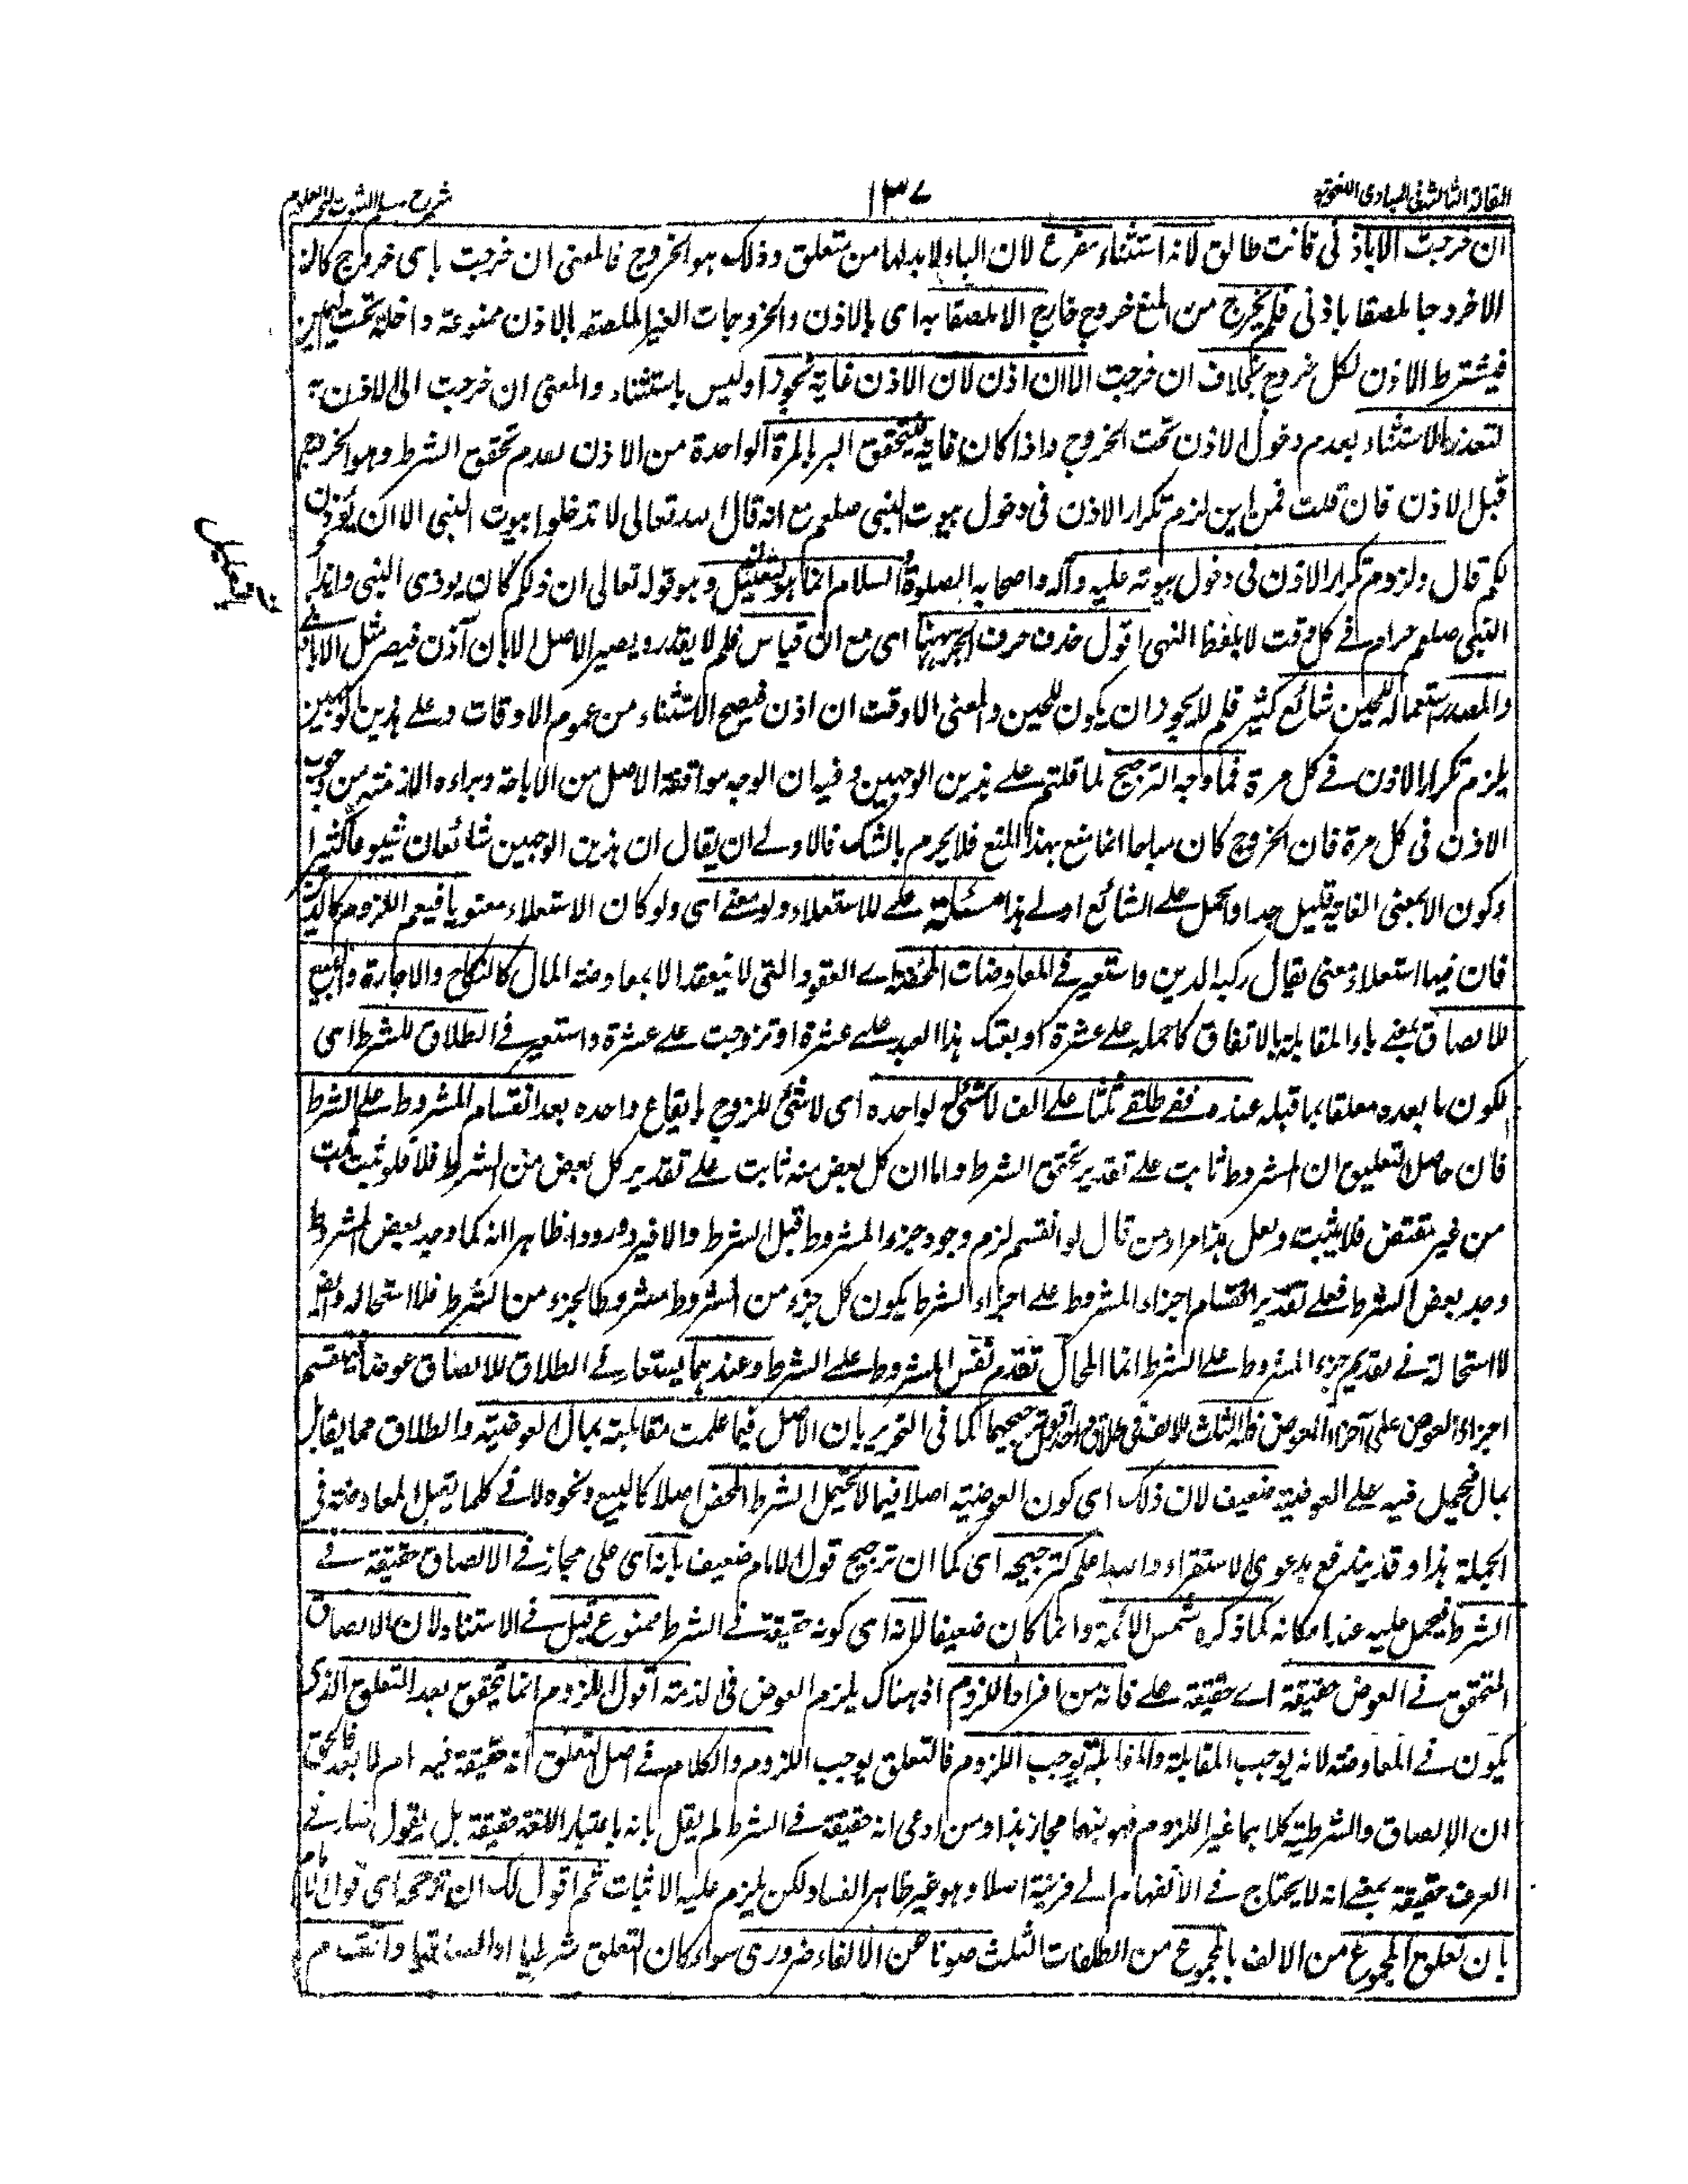 المقالة الثالثة فى المبادى اللغوية
١٣٧
شرح مسلم الثبوت لبحر العلوم
ان خرجت الا باذنى فانت طالق لانه استثناء مفرغ لان الباء لا بد لها من متعلق وذلك هو الخروج فالمعنى ان خرجت باى خروج كان
الا خروجا ملصقا باذنى فلم يخرج من المنع خروج خارج الا ملصقا به اى بالاذن والخروجات الغير الملصقه بالاذن ممنوعة داخلة تحت اليمين
فيشترط الاذن لكل خروج بخلاف ان خرجت الا ان اذن لان الاذن غاية تجوزا وليس باستثناء والمعنى ان خرجت الى الاذن
لتعذر الاستثناء بعدم دخول الاذن تحت الخروج واذا كان غاية فيتحقق البر بالمرة الواحدة من الاذن لعدم تحقق الشرط وهو الخروج
قبل الاذن فان قلت فمن اين لزم تكرار الاذن فى دخول بيوت النبى صلعم مع انه قال الله تعالى لا تدخلوا بيوت النبى الا ان يؤذن
لكم قال ولزوم تكرار الاذن فى دخول بيوته عليه وآله واصحابه الصلوة والسلام انما هو بالتعليل وهو قوله تعالى ان ذلكم كان يوذى النبى وايذاء
النبى صلعم حرام فى كل وقت لا بلفظ النهى اقول حذف حرف الجر ههنا اى مع ان قياس فلم لا يقدر ويصير الاصل الا بان آذن فيصر مثل الا باذنى
والمصدر استعماله للحين شائع كثير فلم لا يجوز ان يكون للحين والمعنى الا وقت ان اذن فيصح الاستثناء من عموم الاوقات وعلى هذين الوجهين
يلزم تكرار الاذن فى كل مرة فما وجه الترجيح لما قلتم على هذين الوجهين وفيه ان الوجه موافقة الاصل من الاباحة وبراءه الذمته من وجوب
الاذن فى كل مرة فان الخروج كان مباحا انما منع بهذا المنع فلا يحرم بالشك فالاولى ان يقال ان هذين الوجهين شائعان شيوعا كثيرا
وكون الا بمعنى الغاية قليل جدا والحمل على الشائع اولى هذا مسئلة على للاستعلاء ولو معنى اى ولو كان الاستعلاء معنويا فيعم اللزوم كالدين
فان فيها استعلاء معنى يقال ركبه الدين واستعير فى المعاوضات المحضة اى العقود التى لا ينعقد الا بمعاوضة المال كالنكاح والاجارة والبيع
للالصاق بمعنى باء المقابلة بالاتفاق كاحمله على عشرة او بعتك هذا العبد على عشرة او تزوجت على عشرة واستعير فى الطلاق للشرط اى
لكون ما بعده معلقا بما قبله عنده ففى طلقنى ثلثا على الف لا شئ له لواحده اى لا شئ للزوج بايقاع واحده بعدم انقسام المشروط على الشرط
فان حاصل التعليق ان المشروط ثابت على تقدير تحقق الشرط واما ان كل بعض منه ثابت على تقدير كل بعض من الشرط فلا فلو ثبت ثبت
من غير مقتض فلا يثبت ولعل هذا مراد من قال لو انقسم لزم وجود جزء المشروط قبل الشرط والا فيرد ورودا ظاهرا انه كما وجد بعض المشروط
وجد بعض الشرط فعلى تقدير انقسام اجزاء المشروط على اجزاء الشرط يكون كل جزء من المشروط مشروطا بجزء من الشرط فلا استحالة وايضا
لا استحالة فى تقديم جزء المشروط على الشرط انما المحال تقدم نفس المشروط على الشرط وعندهما يستعار فى الطلاق للالصاق عوضا فتنقسم
اجزاء العوض على اجزاء المعوض فله الثلث للالف فى طلاق واحد وقع ترجيحهما كما فى التحرير بان الاصل فيما علمت مقابلته بمال العوضية والطلاق مما يقابل
بمال فيحمل فيه على العوضية ضعيف لان ذلك اى كون العوضيته اصلا فيما لا يحتمل الشرط المحض اصلا كالبيع ونحوه لا فى كلما يقبل المعاوضته فى
الجملة هذا وقد يندفع بدعوى الاستقراء والله اعلم كترجيحه اى كما ان ترجيح قول الامام ضعيف بانه اى على مجاز فى الالصاق حقيقة فى
الشرط فيحمل عليه عند امكانه كما ذكره شمس الائمة وانما كان ضعيفا لانه اى كونه حقيقة فى الشرط ممنوع قيل فى الاستناد لان الالصاق
المتحقق فى العوض حقيقة اى حقيقة على فانه من افراد اللزوم اذ هناك يلزم العوض فى الذمته اقول اللزوم انما يتحقق بعد التعلق الذى
يكون فى المعاوضته لانه يوجب المقابلة والمقابلة يوجب اللزوم فالتعلق يوجب اللزوم والكلام فى اصل التعلق انه حقيقة فيه ام لا بعد فالحق
ان الالصاق والشرطية كلاهما غير اللزوم فهو فيهما مجاز هذا ومن ادعى انه حقيقة فى الشرط لم يقل بانه باعتبار اللغة حقيقة بل يقول انه صار فى
العرف حقيقة بمعنى انه لا يحتاج فى الانفهام الى قرينة اصلا وهو غير ظاهر الفساد ولكن يلزم عليه الاثبات ثم اقول لك ان ترجحه اى قول الامام
بان تعلق المجموع من الالف بالمجموع من الطلقات الثلث صونا عن الالغاء ضرورى سواء كان التعلق شرطيا او الصاقيا وانقسام